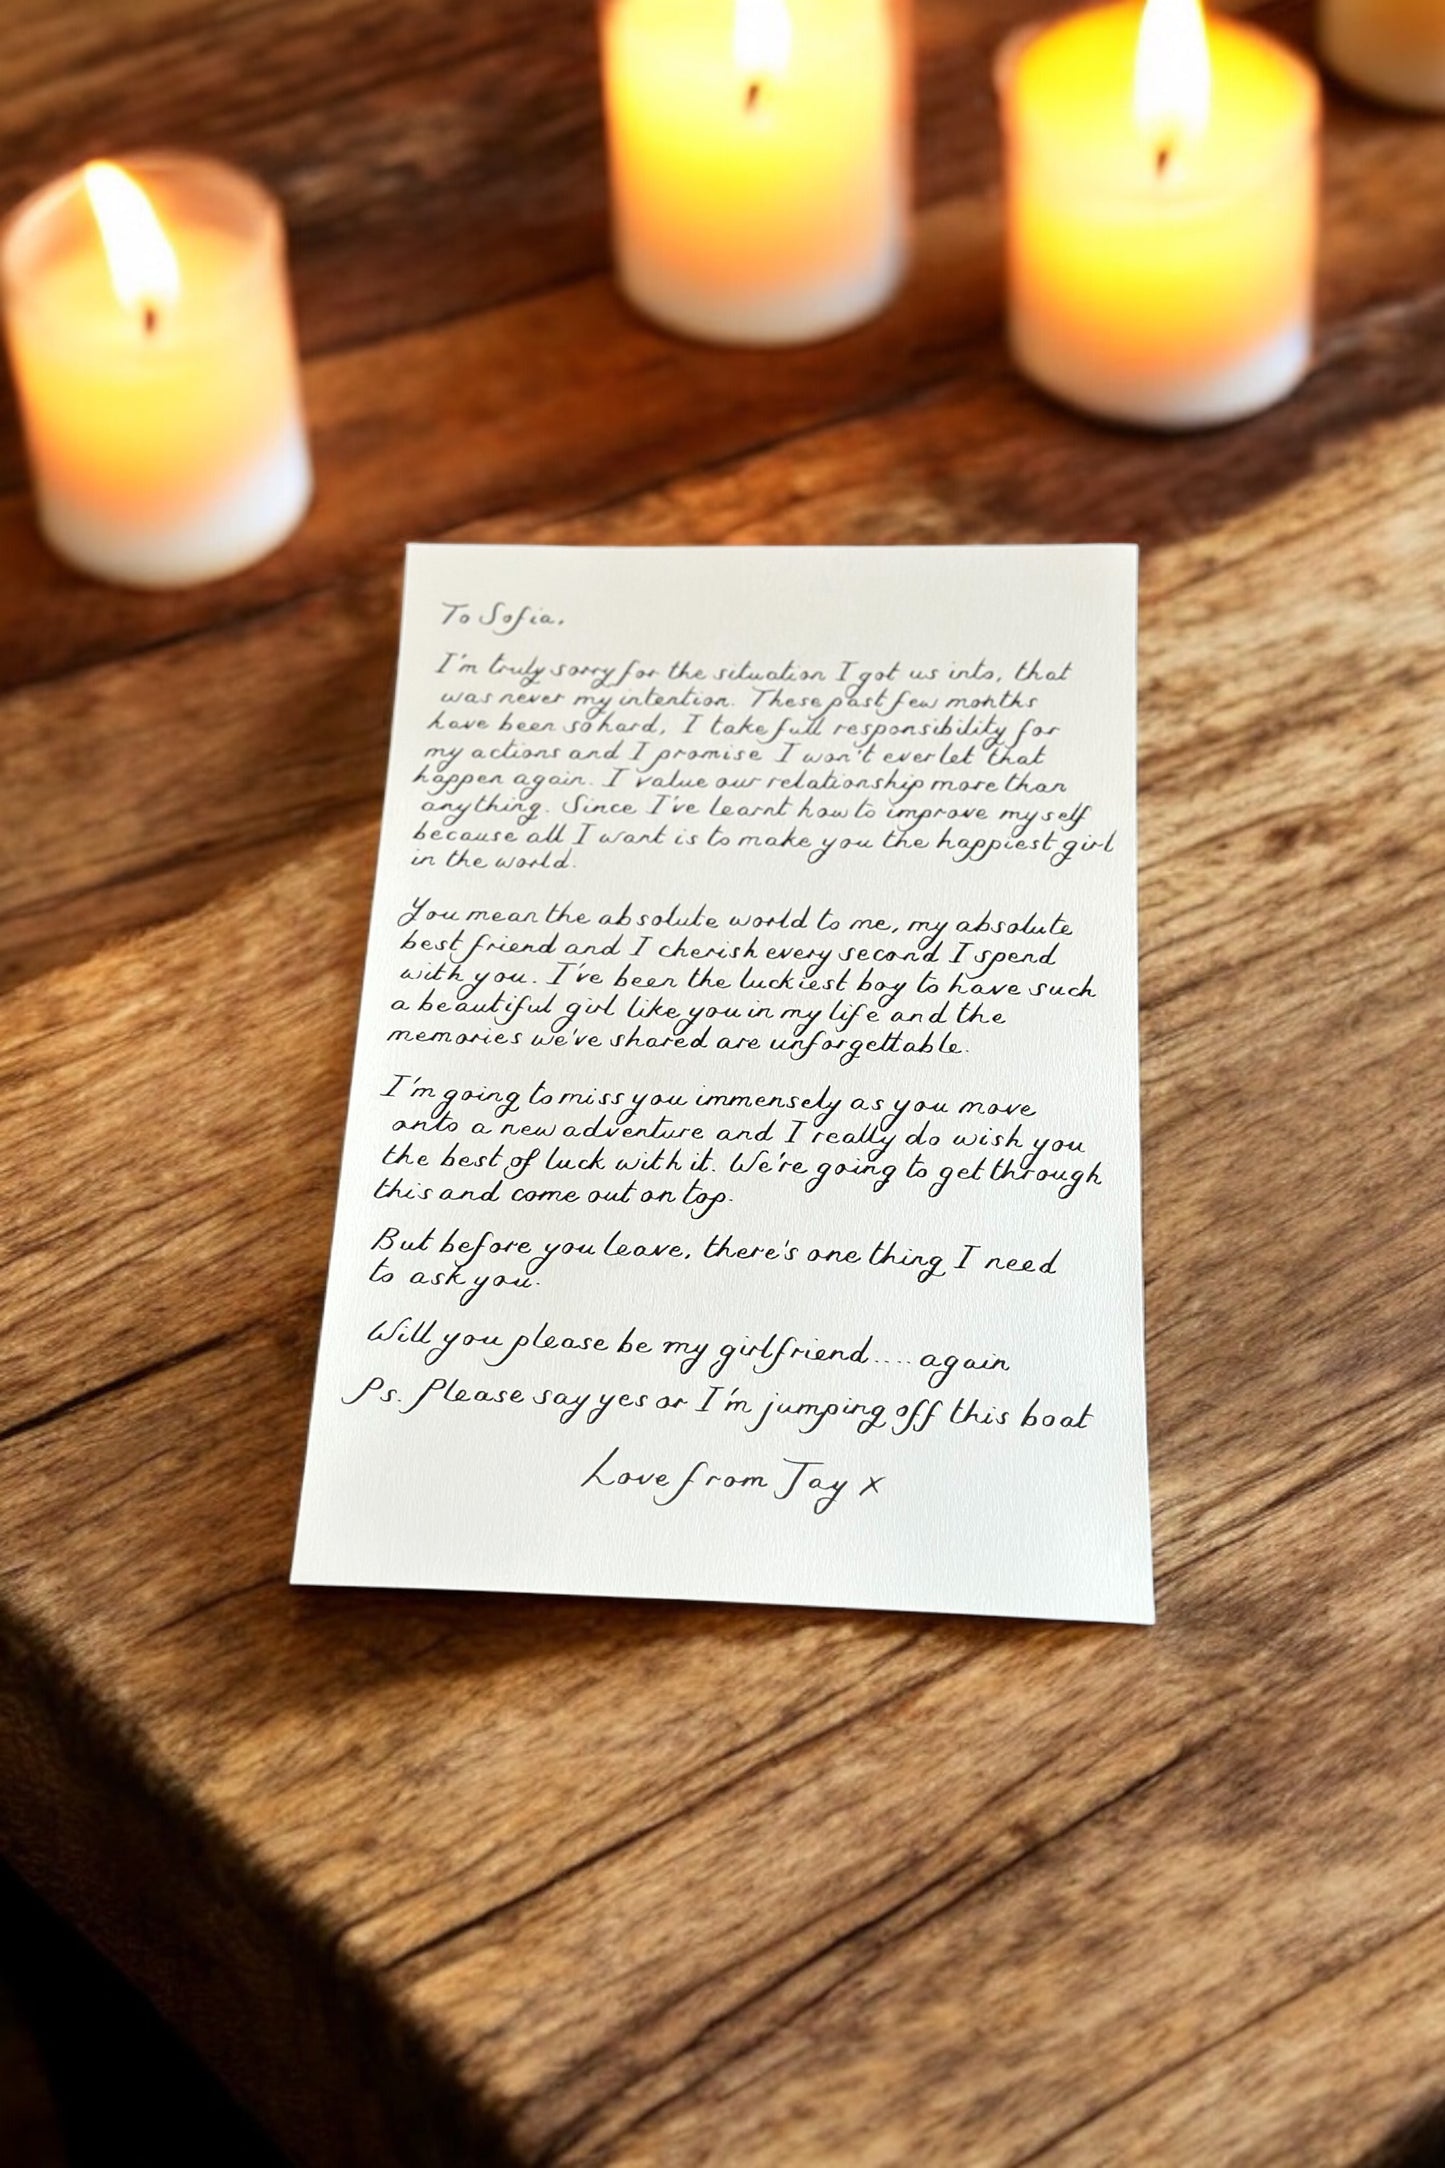 To Sofia,
I'm truly sorry for the situation I got us into, that
was never my intention. These past few months
have been so hard, I take full responsibility for
my actions and I promise I won't ever let that
happen again. I value our relationship more than
anything. Since I've learnt how to improve myself
because all I want is to make you the happiest girl
in the world.
You mean the absolute world to me, my absolute
best friend and I cherish every second I spend
with you. I've been the luckiest boy to have such
a beautiful girl like you in my life and the
memories we've shared are unforgettable.
I'm going to miss you immensely as you move
onto a new adventure and I really do wish you
the best of luck with it. We're going to get through
this and come out on top.
But before you leave, there's one thing I need
to ask you.
Will you please be my girlfriend.... again
Ps. Please say yes or I'm jumping off this boat
Love from Jay x